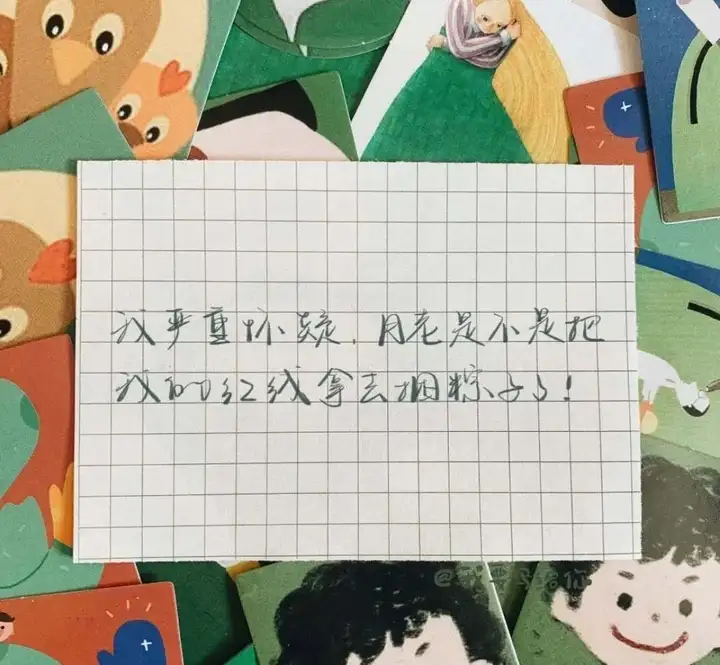 我严重怀疑,月老是不是把
我的红线拿去捆粽子了!